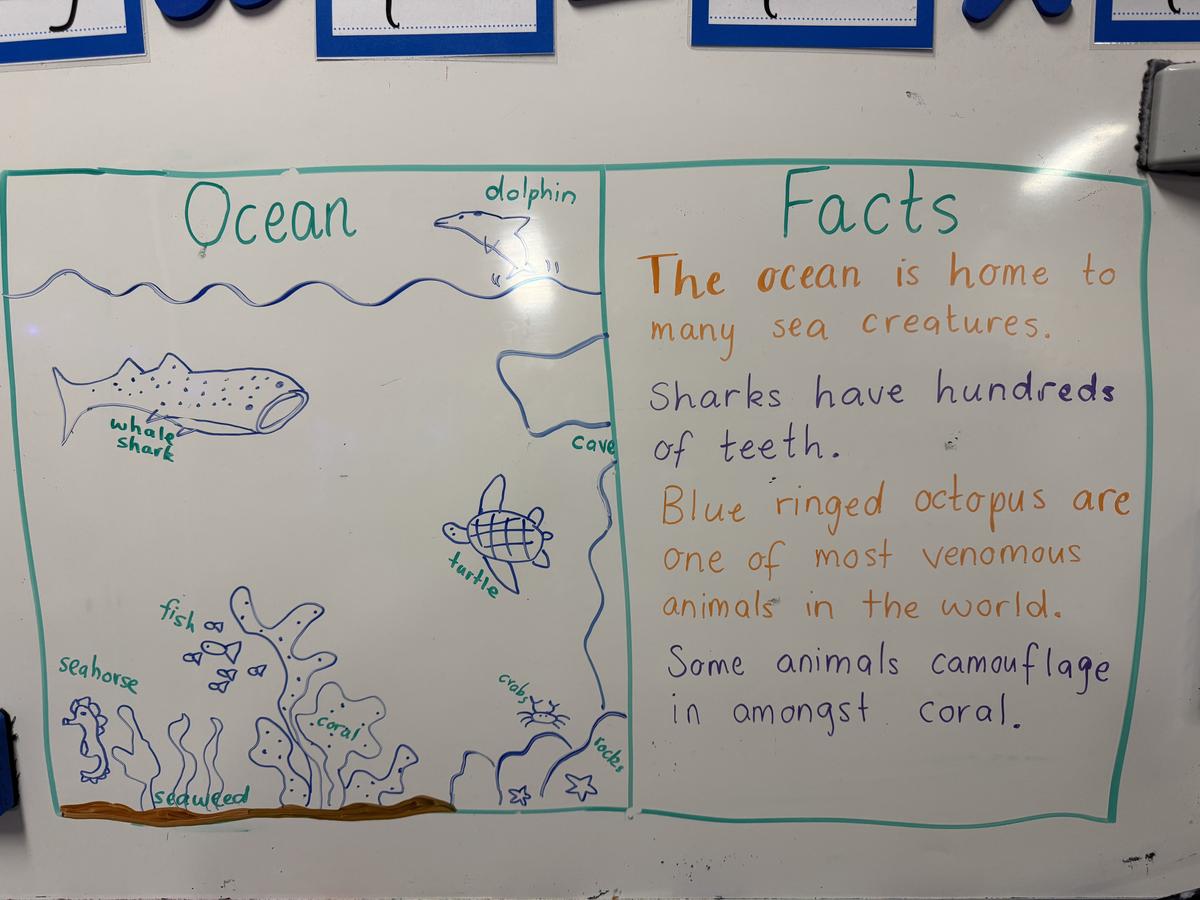 Ocean
dolphin
whale
shark
cave
turtle
fish
seahorse
crabs
coral
rocks
seaweed
Facts
The ocean is home to
many sea creatures.
Sharks have hundreds
of teeth.
Blue ringed octopus are
one of most venomous
animals in the world.
Some animals camouflage
in amongst coral.